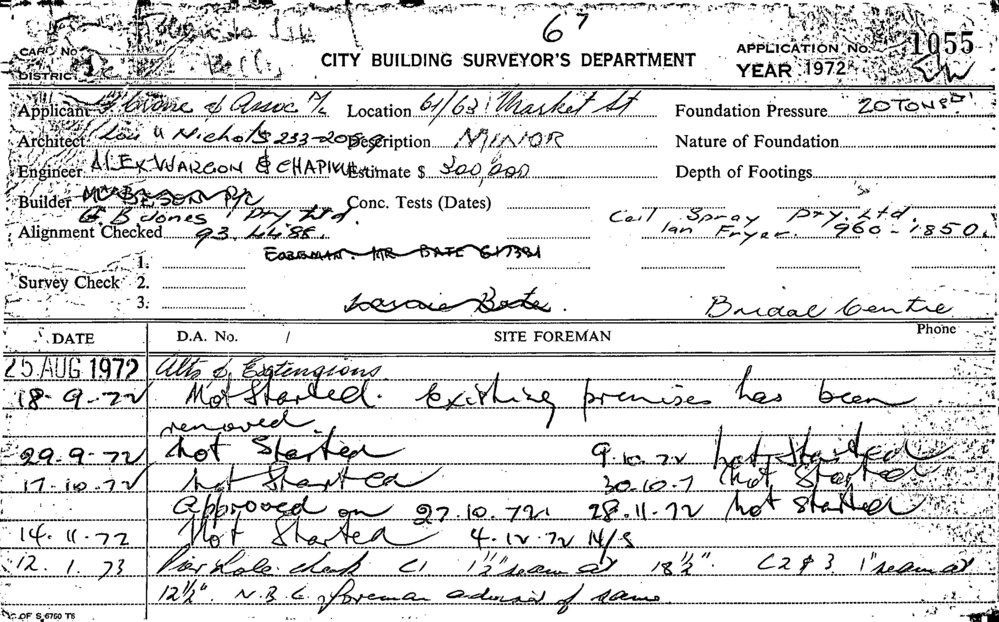 67
CARD No.
CITY BUILDING SURVEYOR'S DEPARTMENT
APPLICATION No. 1055
DISTRICT
YEAR 1972
Applicant & Assoc P/L Location 61/63 Market St Foundation Pressure 20 TONS
Architect Lou A Nichols 233-2059 Description MINOR Nature of Foundation
Engineer ALEX WARGON & CHAPMAN Estimate $ 300,000 Depth of Footings
Builder P/L Conc. Tests (Dates)
G. B Jones Pty Ltd. Ceil Spray Pty. Ltd.
Alignment Checked 93.4488. Ian Fryer. 960-1850.
FOREMAN. MR BATE 617381
1.
Survey Check 2.
3. Bate. Bridal Centre
DATE D.A. No. / SITE FOREMAN Phone
25 AUG 1972 Alts & Extensions
18-9-72 Not Started. Existing premises has been
removed.
29.9.72 Not Started 9.10.72 Not Started
17.10.72 Not Started 30.10.7 Not Started
Approved on 27.10.72 28.11.72 Not Started
14.11.72 Not Started 4.12.72 N/S
12.1.73 Pier hole check C1 1½" seam at 18½". C2 & 3. 1" seam at
12½". N.B.C. foreman advised of same.
D.C. OF S. 6750 T6